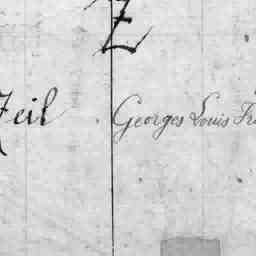 Z
Zeil Georges Louis